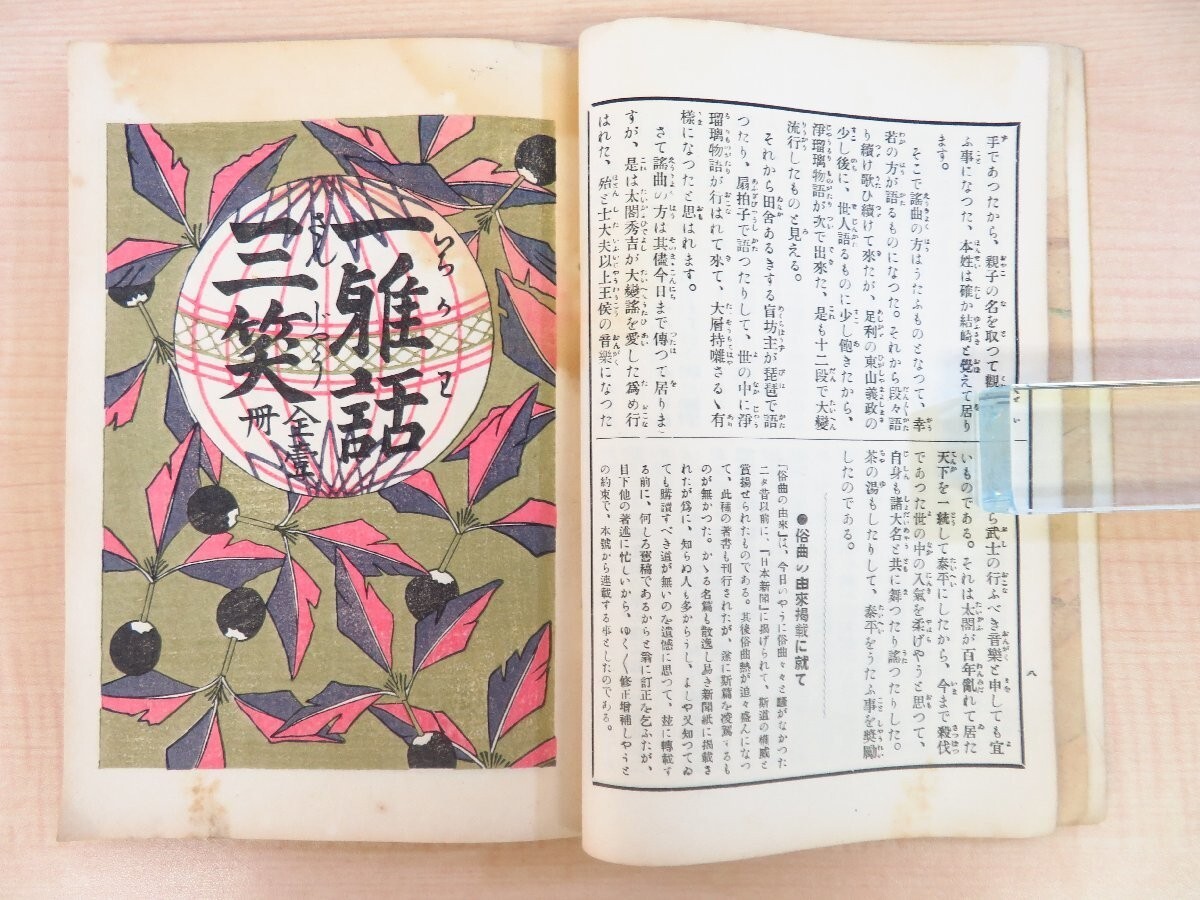 手であつたから、親子の名を取つて觀
ふ事になつた、本姓は確か結崎と覺えて居り
ます。
そこで謠曲の方はうたふものとなつて、幸
若の方が語るものになつた。それから段々語
り續け歌ひ續けて來たが、足利の東山義政の
少し後に、世人語るものに少し飽きたから、
淨瑠璃物語が次で出來た、是も十二段で大變
流行したものと見える。
それから田舍あるきする盲坊主が琵琶で語
つたり、扇拍子で語つたりして、世の中に淨
瑠璃物語が行はれて來て、大層持囃さるゝ有
樣になつたと思はれます。
さて謠曲の方は其儘今日まで傳つて居りま
すが、是は太閤秀吉が大變謠を愛した爲め行
はれた、殆ど士大夫以上王侯の音樂になつた
ら武士の行ふべき音樂と申しても宜
いものである。それは太閤が百年亂れて居た
天下を一統して泰平にしたから、今まで殺伐
であつた世の中の人氣を柔げやうと思つて、
自身も諸大名と共に舞つたり謠つたりした。
茶の湯もしたりして、泰平をうたふ事を奬勵
したのである。
●俗曲の由來揭載に就て
『俗曲の由來』は、今日のやうに俗曲々々と騷がなかつた
二タ昔以前に、『日本新聞』に揭げられて、斯道の權威と
賞揚せられたものである。其後俗曲熱が追々盛んになつ
て、此種の著書も刊行されたが、遂に斯篇を凌駕するも
のが無かつた。かゝる名篇も散逸し易き新聞紙に揭載さ
れたが爲に、知らぬ人も多からうし、よしや又知つてゐ
ても購讀すべき道が無いのを遺憾に思つて、玆に轉載す
る前に、何しろ舊稿であるからと翁に訂正を乞ふたが、
目下他の著述に忙しいから、ゆく〱修正增補しやうと
の約束で、本號から連載する事としたのである。
八
一雅話
いちがわ
三笑
さんじやう
全壹
冊